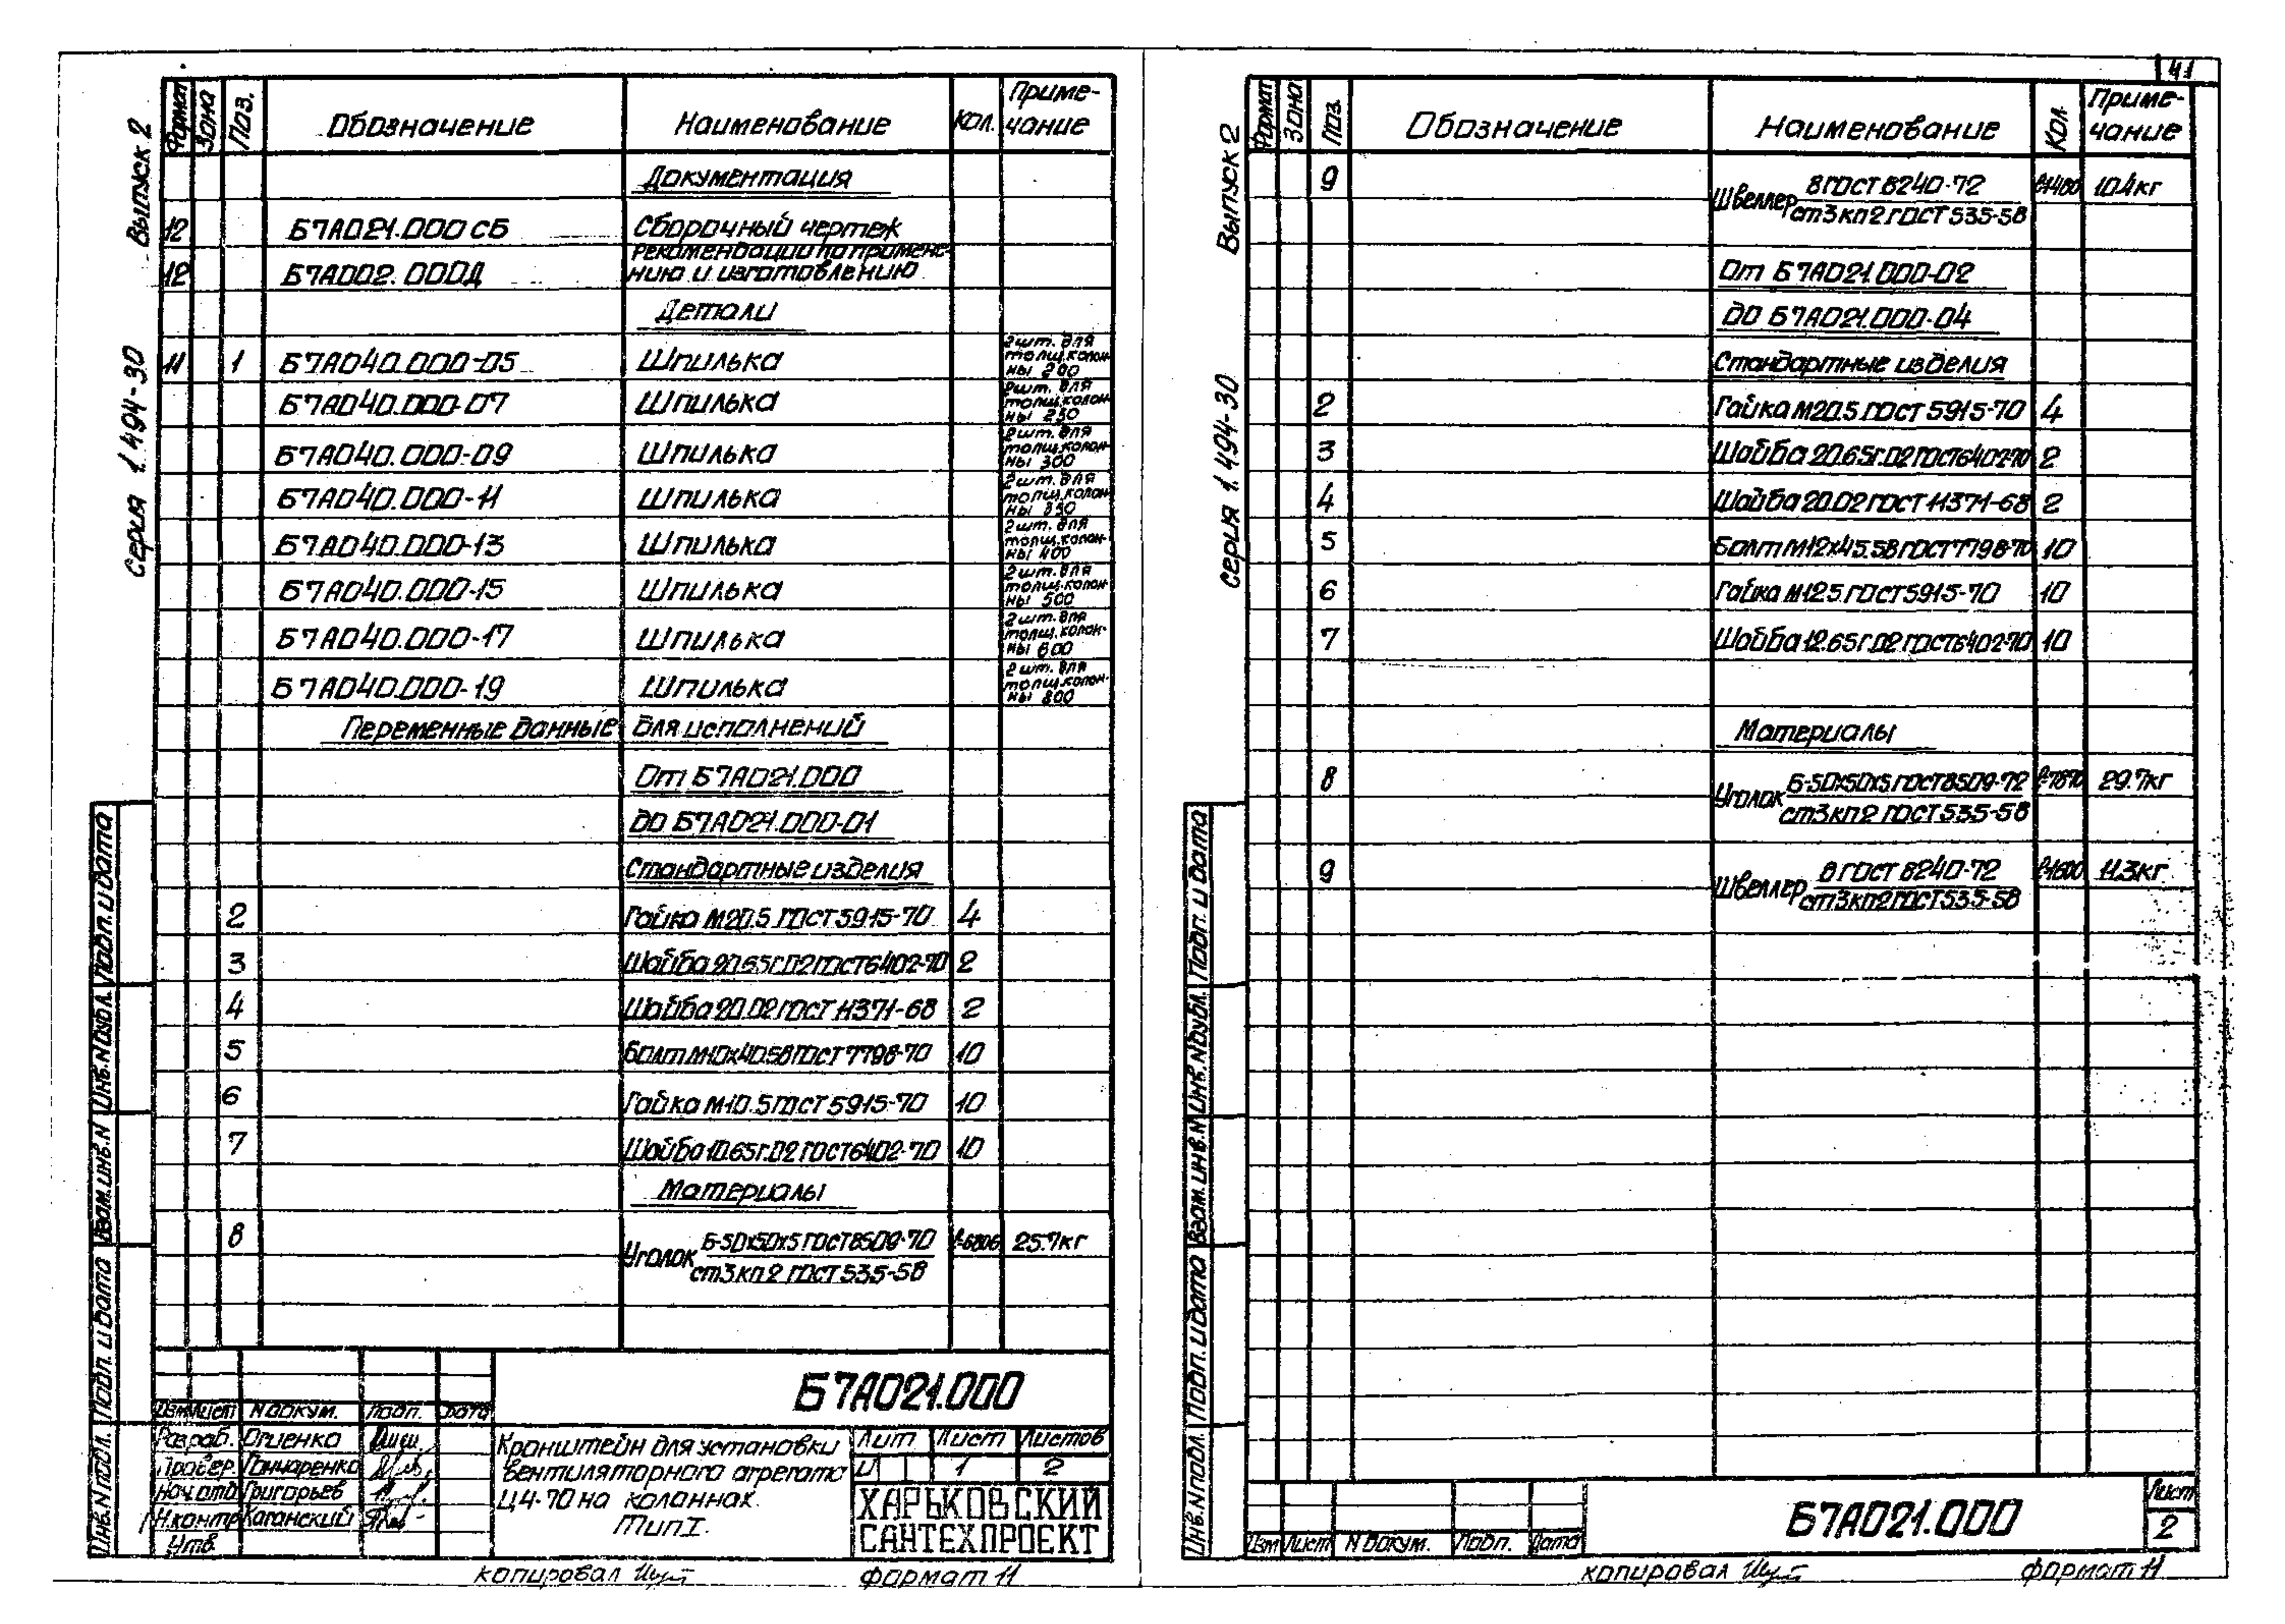 Серия 1.494-30 Выпуск 2
Формат Зона Поз. Обозначение Наименование Кол. Приме-
чание
Документация
12 Б7А021.000 СБ Сборочный чертеж
12 Б7А002.000Д Рекомендации по примене-
нию и изготовлению
Детали
11 1 Б7А040.000-05 Шпилька 2шт. для
толщ.колон-
ны 200
Б7А040.000-07 Шпилька 2шт. для
толщ.колон-
ны 250
Б7А040.000-09 Шпилька 2шт. для
толщ.колон-
ны 300
Б7А040.000-11 Шпилька 2шт. для
толщ.колон-
ны 350
Б7А040.000-13 Шпилька 2шт. для
толщ.колон-
ны 400
Б7А040.000-15 Шпилька 2шт. для
толщ.колон-
ны 500
Б7А040.000-17 Шпилька 2шт. для
толщ.колон-
ны 600
Б7А040.000-19 Шпилька 2шт. для
толщ.колон-
ны 800
Переменные данные для исполнений
От Б7А021.000
до Б7А021.000-01
Стандартные изделия
2 Гайка М20.5.ГОСТ 5915-70 4
3 Шайба 20.65Г.02 ГОСТ 6402-70 2
4 Шайба 20.02 ГОСТ 11371-68 2
5 Болт М10х40.58 ГОСТ 7798-70 10
6 Гайка М10.5 ГОСТ 5915-70 10
7 Шайба 10.65Г.02 ГОСТ 6402-70 10
Материалы
8 Уголок Б-50х50х5 ГОСТ 8509-70 ℓ-6806 25.7кг
ст3кп2 ГОСТ 535-58
Инв.N подл. Подп. и дата Взам.инв.N Инв.N дубл. Подп. и дата
Б7А021.000
Изм Лист N докум. Подп. Дата
Разраб. Огиенко
Провер. Гончаренко
Нач.отд Григорьев
Н.контр Каганский
Утв.
Кронштейн для установки
вентиляторного агрегата
Ц4-70 на колоннах.
Тип I.
Лит Лист Листов
И 1 2
ХАРЬКОВСКИЙ
САНТЕХПРОЕКТ
Копировал Формат 11
41
Серия 1.494-30 Выпуск 2
Формат Зона Поз. Обозначение Наименование Кол. Приме-
чание
9 Швеллер 8 ГОСТ 8240-72 ℓ-1480 10.4кг
ст3кп2 ГОСТ 535-58
От Б7А021.000-02
до Б7А021.000-04
Стандартные изделия
2 Гайка М20.5.ГОСТ 5915-70 4
3 Шайба 20.65Г.02 ГОСТ 6402-70 2
4 Шайба 20.02 ГОСТ 11371-68 2
5 Болт М12х45.58 ГОСТ 7798-70 10
6 Гайка М12.5 ГОСТ 5915-70 10
7 Шайба 12.65Г.02 ГОСТ 6402-70 10
Материалы
8 Уголок Б-50х50х5 ГОСТ 8509-72 ℓ-7870 29.7кг
ст3кп2 ГОСТ 535-58
9 Швеллер 8 ГОСТ 8240-72 ℓ-1600 11.3кг
ст3кп2 ГОСТ 535-58
Инв.N подл. Подп. и дата Взам.инв.N Инв.N дубл. Подп. и дата
Изм Лист N докум. Подп. Дата
Б7А021.000
Лист
2
Копировал Формат 11